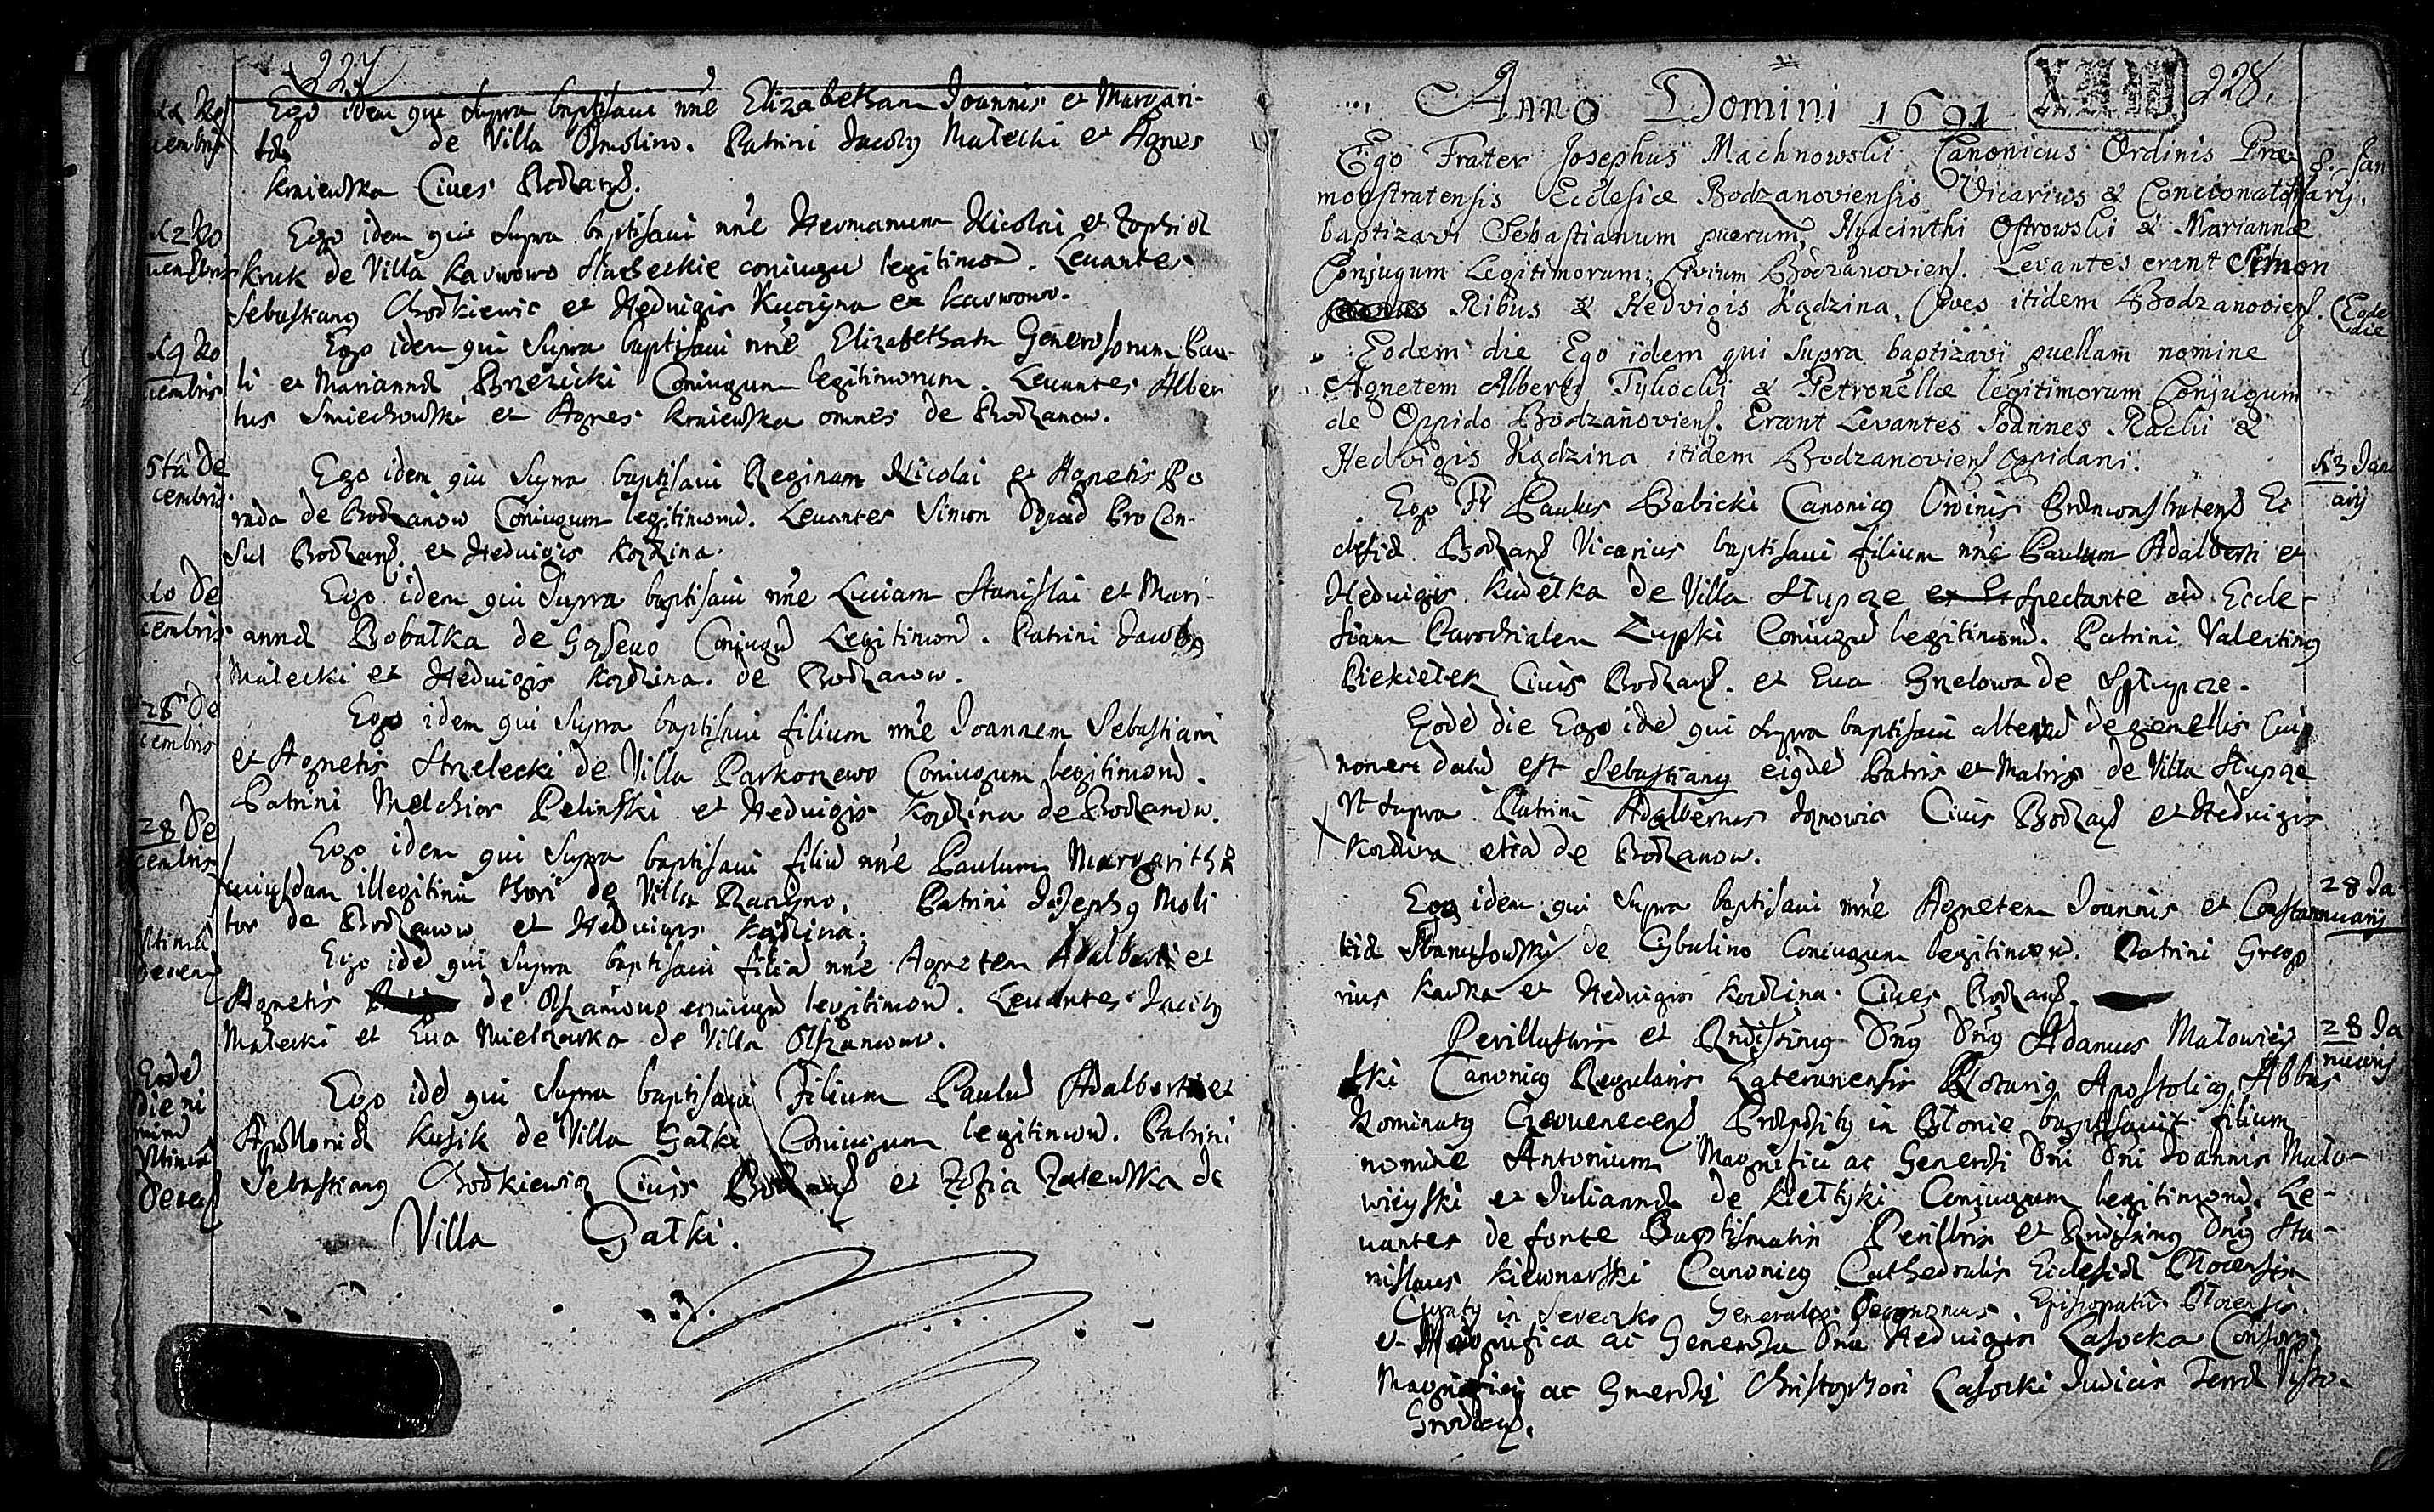 227
Ego idem qui supra baptisaui nn̄e Elizabetham Joannis et Margari-
tæ de Villa Osmolino. Patrini Jacobꝯ Małecki et Agnes
kmiewska Ciues Bodzanẜ.
Ego idem qui supra baptisaui nn̄e Hermanum Nicolai et Zophiæ
kruk de Villa karwowo Szlacheckie coniugu legitimorꝫ. Leuantes
Sebastianꝯ Chodkiewic et Heduigis Kuczyna ex karwowo.
Ego idem qui supra baptisaui nn̄e Elizabetham Generosorum Pau-
li et Mariannæ Brzezicki Coniugum legitimorum. Leuantes Alber
tus Smiechowski et Agnes kmiewska omnes de Bodzanow.
5ta De
cembris
Ego idem qui supra baptisaui Reginam Nicolai et Agnetis Po
rada de Bodzanow Coniugum legitimorꝫ. Leuantes Simon Pro Con-
sul Bodzanẜ. et Heduigis kozdzina.
10 De
cembris
Ego idem qui supra baptisaui nn̄e Luciam Stanislai et Mari-
annæ Bobałka de Coniugū Legitimorꝫ. Patrini Jacobꝯ
Małecki et Heduigis kozdzina. de Bodzanow.
28 De
cembris
Ego idem qui supra baptisaui filium nn̄e Joannem Sebastiani
et Agnetis Strzelecki de Villa Parkoczewo Coniugum legitimorꝫ.
Patrini Melchior Pelinski et Heduigis kozdzina de Bodzanow.
28 De
cembris
Ego idem qui supra baptisaui filiū nn̄e Paulum Margarithæ
cuiusdam illegitimi thori de Villa Raczyno. Patrini Josephꝯ Moli
tor de Bodzanow et Heduigis kozdzina.
Vltima
Decenẜ
Ego idē qui supra baptisaui filiā nn̄e Agnetem Adalberti et
Agnetis de coniugū legitimorꝫ. Leuantes Jacobꝯ
Małecki et Eua Mielczarka de Villa
Eodē
die
Vltima
Decenẜ
Ego idē qui supra baptisaui Filium Paulū Adalberti et
Apolloniæ kusik de Villa Gałki Coniugum legitimorꝫ. Patrini
Sebastianꝯ Chodkiewicz Ciuis Bodzanẜ et Zofia Zalewska de
Villa Gałki.
228.
Anno Domini 1691
Ego Frater Josephus Machnowski Canonicus Ordinis Præ 8. Jan
monstratensis Ecclesiæ Bodzanoviensis Vicarius & Concionator arij.
baptizavi Sebastianum puerum, Hyacinthi Ostrowski & Mariannæ
Conjugum Legitimorum, Civium Bodzanovienẜ. Levantes erant Simon
Ribus & Hedvigis Kądzina, Cives itidem Bodzanovienẜ. Eode
die
Eodem die Ego idem qui supra baptizavi puellam nomine
Agnetem Alberti Tylicki & Petronellæ legitimorum Conjugum
de Oppido Bodzanovienẜ. Erant Levantes Joannes Racki &
Hedvigis Kądzina itidem Bodzanovienẜ oppidani.
13 Janu
arij
Ego Fr Paulus Babicki Canonicꝯ Ordinis Præmonstratenẜ Ec
clesiæ Bodzanẜ Vicarius baptisaui filium nn̄e Paulum Adalberti et
Heduigis kudełka de Villa Słupcze spectante ad Eccle-
siam Parochialem Zupski Coniugū legitimorꝫ. Patrini Valentinꝯ
Piekiełek Ciuis Bodzanẜ. et Eua Gnelowa de Słupcze.
Eodē die Ego idē qui supra baptisaui alterū de gemellis Cui
nomen datū est Sebastianꝯ eiꝯdē Patris et Matris de Villa Słupcze
Vt supra Patrini Adalbertus Ciuis Bodzanẜ et Heduigis
kozdzina etiā de Bodzanow.
28 Ja
nuarij
Ego idem qui supra baptisaui nn̄e Agnetem Joannis et Constan
tiæ de Cybulino Coniugum legitimorꝫ. Patrini Grego
rius kawka et Heduigis kozdzina Ciues Bodzanẜ.
28 Ja
nuarij
Perillustris et Rndissimꝯ Dnꝯ Dnꝯ Adamus Małowiey
ski Canonicꝯ Regularis Lateranensis Notariꝯ Apostolicꝯ Abbas
Nominatꝯ Czeruenecenẜ Præpositꝯ in Błonie baptisauit filium
nomine Antonium Magnifici ac Generosi Dni Dni Joannis Mało-
wieyski et Juliannæ de kiełtyki Coniugum legitimorꝫ. Le-
uantes de fonte Baptismatis Perillris et Rndissimꝯ Dnꝯ Sta-
nislaus kiewnarski Canonicꝯ Cathedralis Ecclesiæ Plocensis
Curatꝯ in Generalis Oeconomus Episcopatus Plocensis.
et Magnifica ac Generosa Dna Heduigis Lasocka Consors
Magnifici ac Generosi Christophori Lasocki Judicis Terræ Visso-
Grodienẜ.